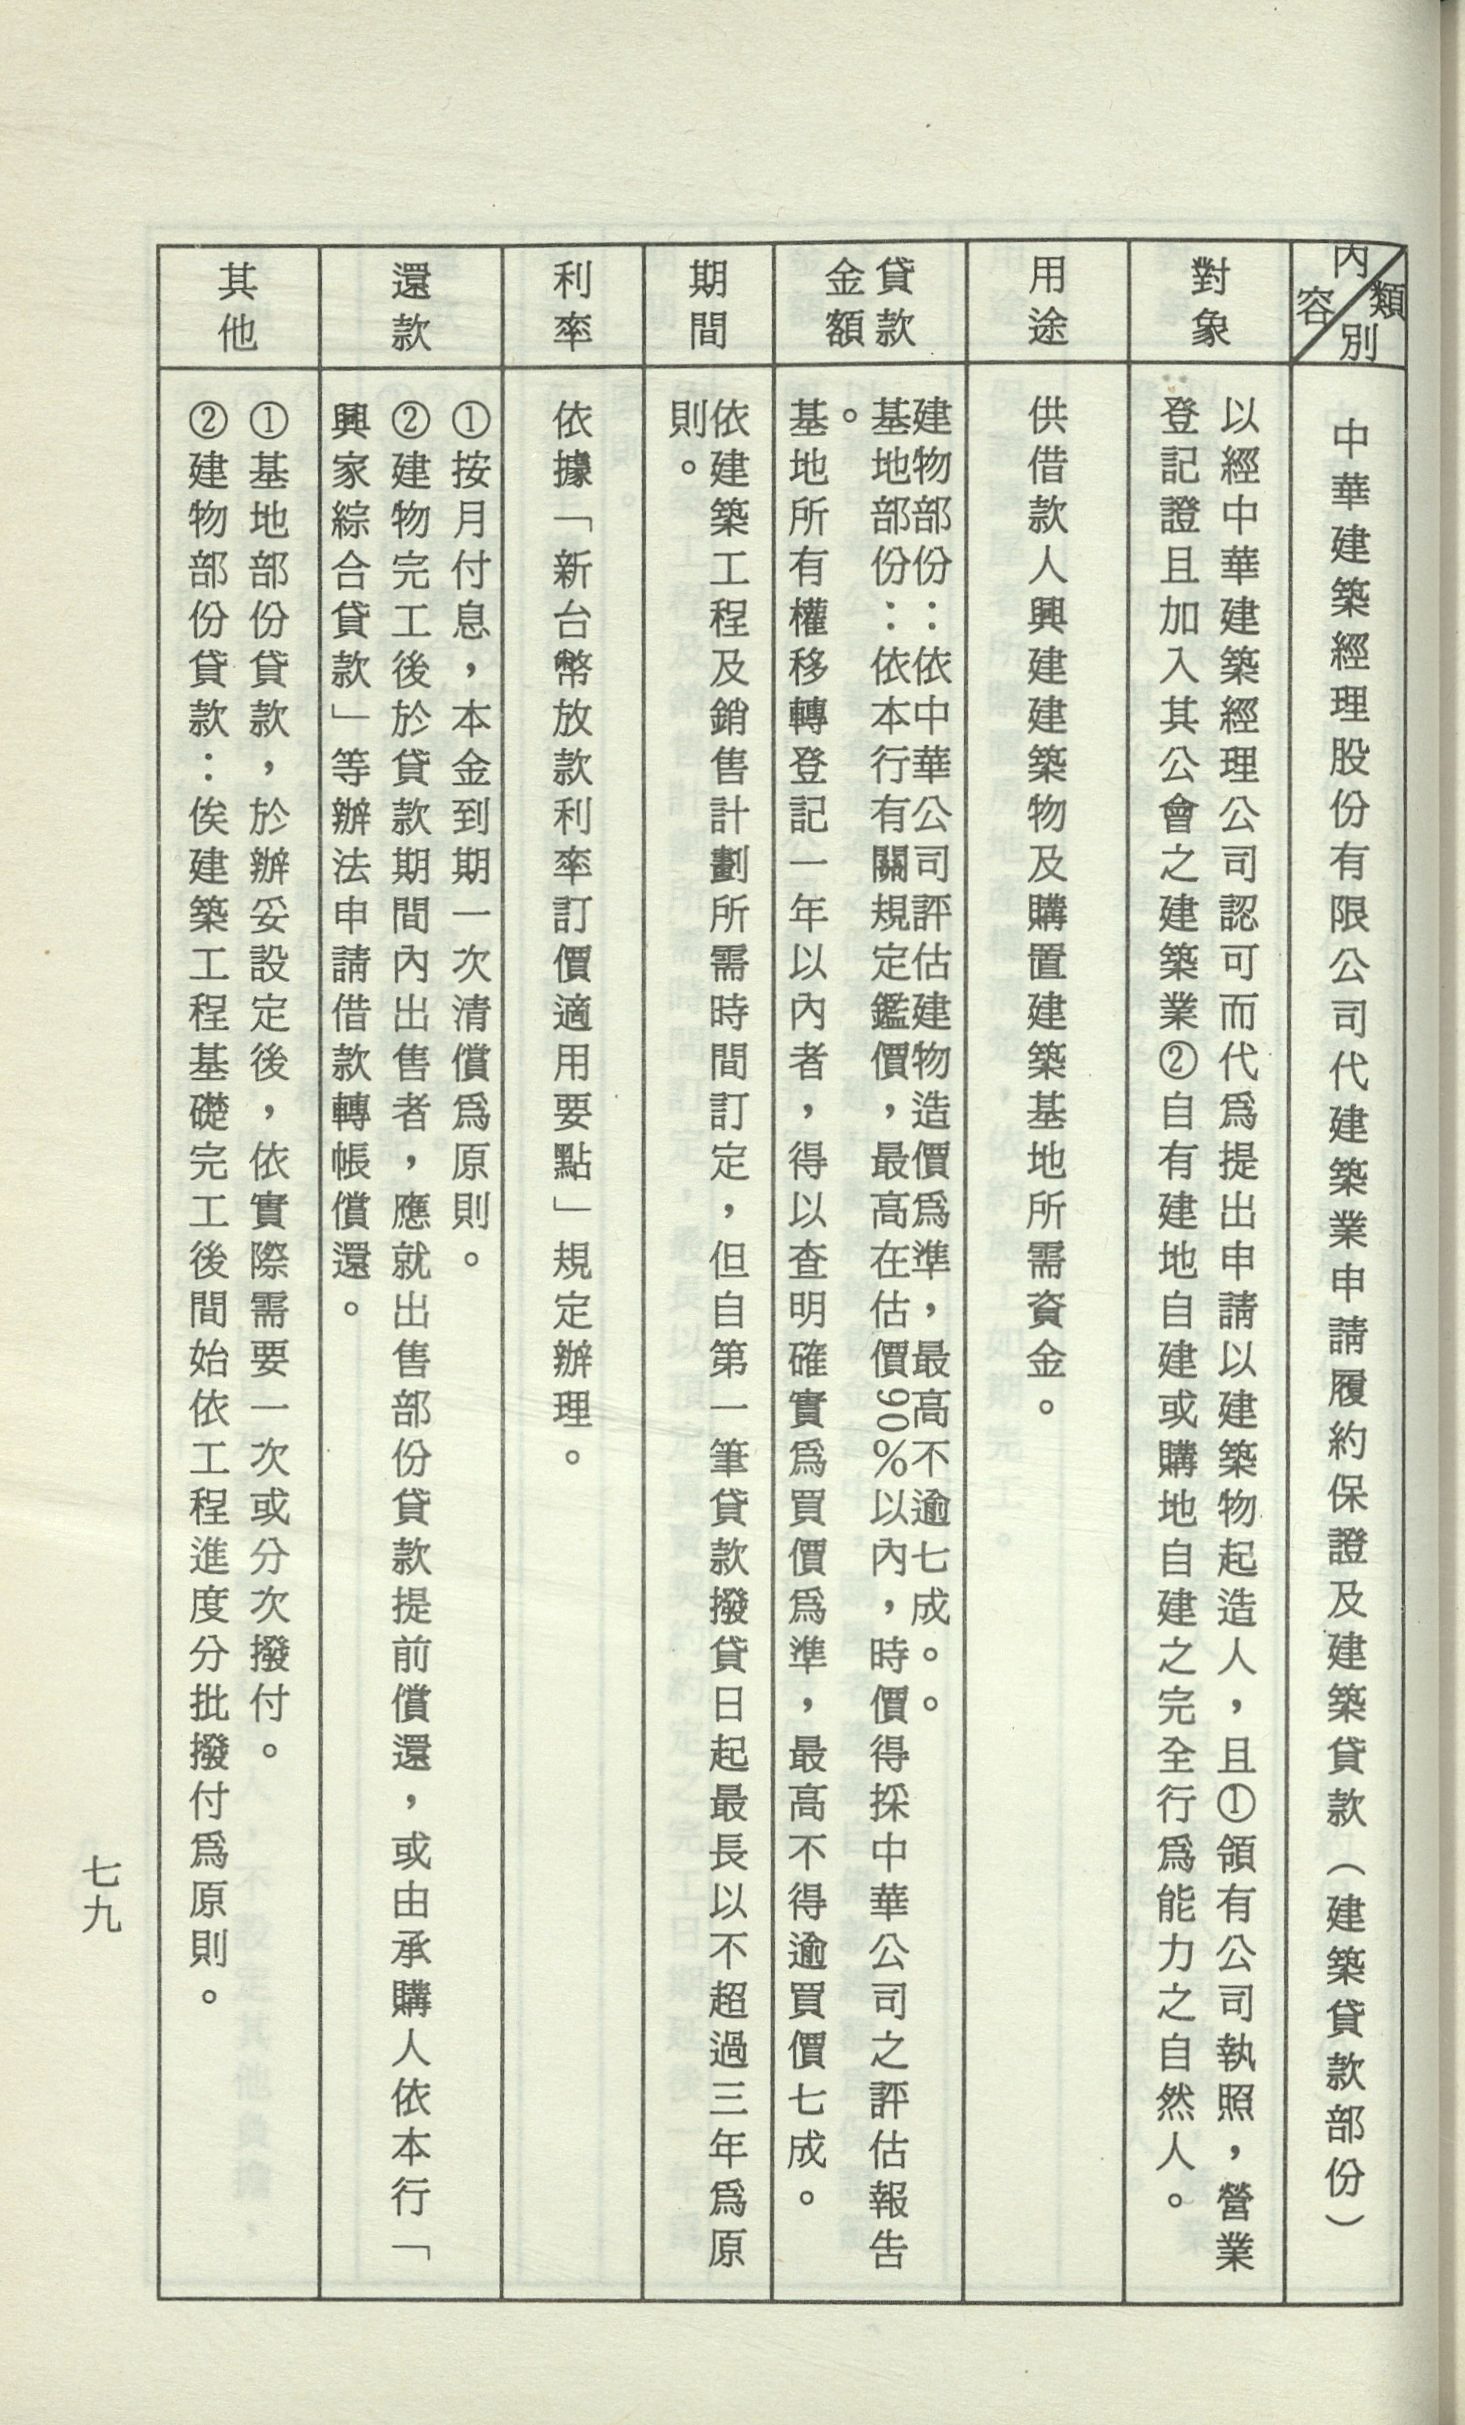 內容
類別
中華建築經理股份有限公司代建築業申請履約保證及建築貸款（建築貸款部份）
對象
以經中華建築經理公司認可而代爲提出申請以建築物起造人，且①領有公司執照，營業
登記證且加入其公會之建築業②自有建地自建或購地自建之完全行爲能力之自然人。
用途
供借款人興建建築物及購置建築基地所需資金。
貸款
金額
建物部份：依中華公司評估建物造價爲準，最高不逾七成。。
基地部份：依本行有關規定鑑價，最高在估價90％以內，時價得採中華公司之評估報告
。
基地所有權移轉登記一年以內者，得以查明確實爲買價爲準，最高不得逾買價七成。
期間
依建築工程及銷售計劃所需時間訂定，但自第一筆貸款撥貸日起最長以不超過三年爲原
則。
利率
依據「新台幣放款利率訂價適用要點」規定辦理。
還款
①按月付息，本金到期一次清償爲原則。
②建物完工後於貸款期間內出售者，應就出售部份貸款提前償還，或由承購人依本行「
興家綜合貸款」等辦法申請借款轉帳償還。
其他
①基地部份貸款，於辦妥設定後，依實際需要一次或分次撥付。
②建物部份貸款：俟建築工程基礎完工後間始依工程進度分批撥付爲原則。
七九